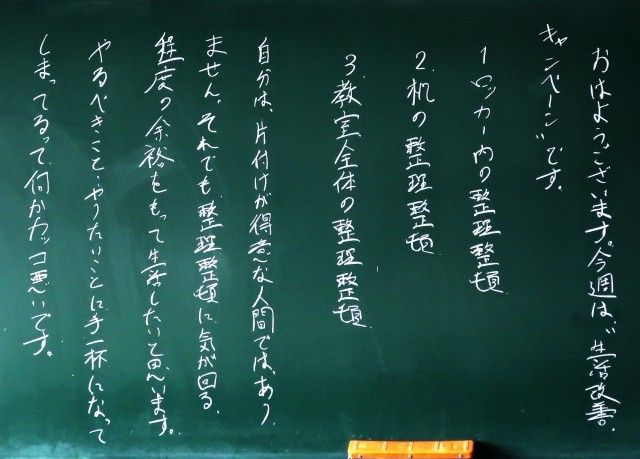 おはようございます。今週は、"生活改善
キャンペーン"です。
1 ロッカー内の整理整頓
2. 机の整理整頓
3. 教室全体の整理整頓
自分は、片付けが得意な人間では、あり
ません。それでも整理整頓に気が回る、
程度の余裕をもって生活したいと思います。
やるべきこと・やりたいことに手一杯になって
しまってるって、何かカッコ悪いです。